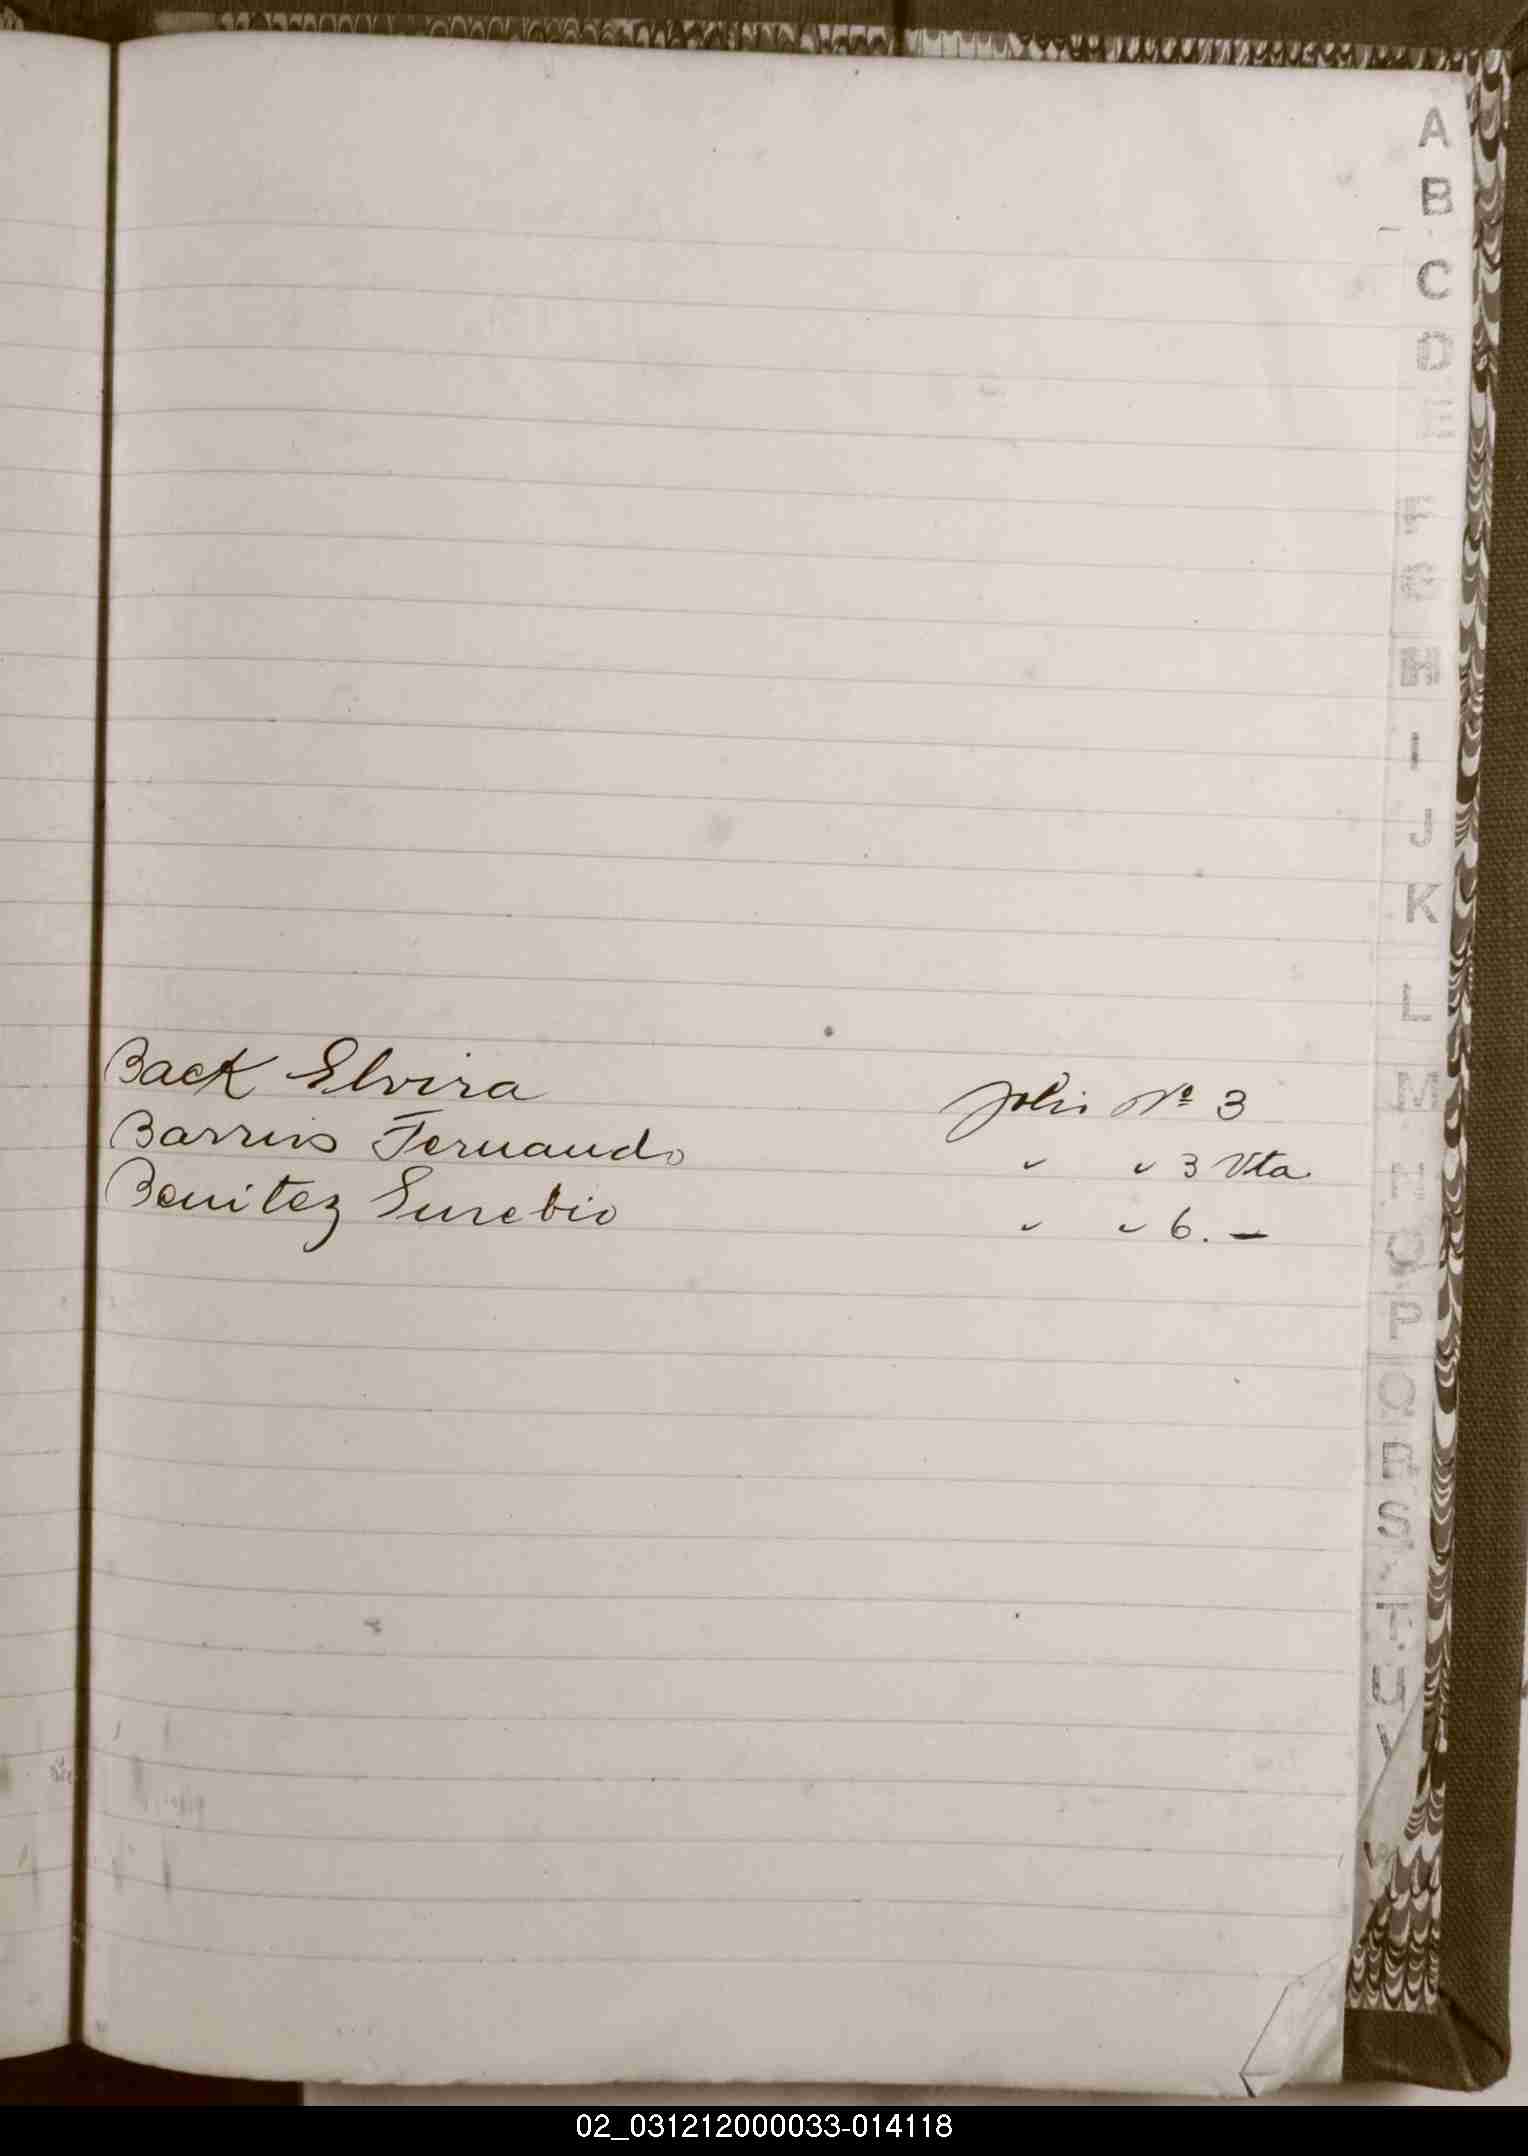 A
B
C
D
E
F
G
H
I
J
K
L
M
Back Elvira folio Nº 3
Barrios Fernando " " 3 Vta
Benitez Eusebio " " 6. —
P
S
U
02_031212000033-014118